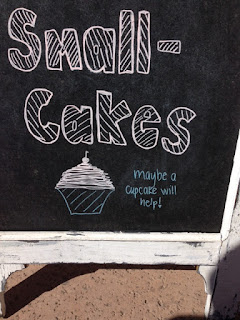 Small-
Cakes
maybe a
cupcake will
help!